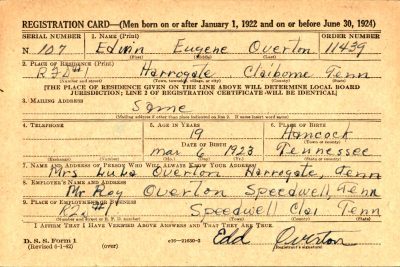 REGISTRATION CARD—(Men born on or after January 1, 1922 and on or before June 30, 1924)
SERIAL NUMBER 1. NAME (Print) ORDER NUMBER
N 107 Edwin Eugene Overton 11439
(First) (Middle) (Last)
2. PLACE OF RESIDENCE (Print)
RFD#1 Harrogate Claiborne Tenn
(Number and street) (Town, township, village, or city) (County) (State)
[THE PLACE OF RESIDENCE GIVEN ON THE LINE ABOVE WILL DETERMINE LOCAL BOARD
JURISDICTION; LINE 2 OF REGISTRATION CERTIFICATE WILL BE IDENTICAL]
3. MAILING ADDRESS
Same
[Mailing address if other than place indicated on line 2. If same insert word same]
4. TELEPHONE 5. AGE IN YEARS 6. PLACE OF BIRTH
19 Hancock
DATE OF BIRTH (Town or county)
mar 6 1923 Tennessee
(Exchange) (Number) (Mo.) (Day) (Yr.) (State or country)
7. NAME AND ADDRESS OF PERSON WHO WILL ALWAYS KNOW YOUR ADDRESS
Mrs Luba Overton Harrogate, Tenn
8. EMPLOYER'S NAME AND ADDRESS
Mr Roy Overton Speedwell, Tenn
9. PLACE OF EMPLOYMENT OR BUSINESS
R2 #1 Speedwell Clai Tenn
(Number and street or R. F. D. number) (Town) (County) (State)
I AFFIRM THAT I HAVE VERIFIED ABOVE ANSWERS AND THAT THEY ARE TRUE.
D. S. S. Form 1
(Revised 6-1-42) (over) Edd Overton
(Registrant's signature)